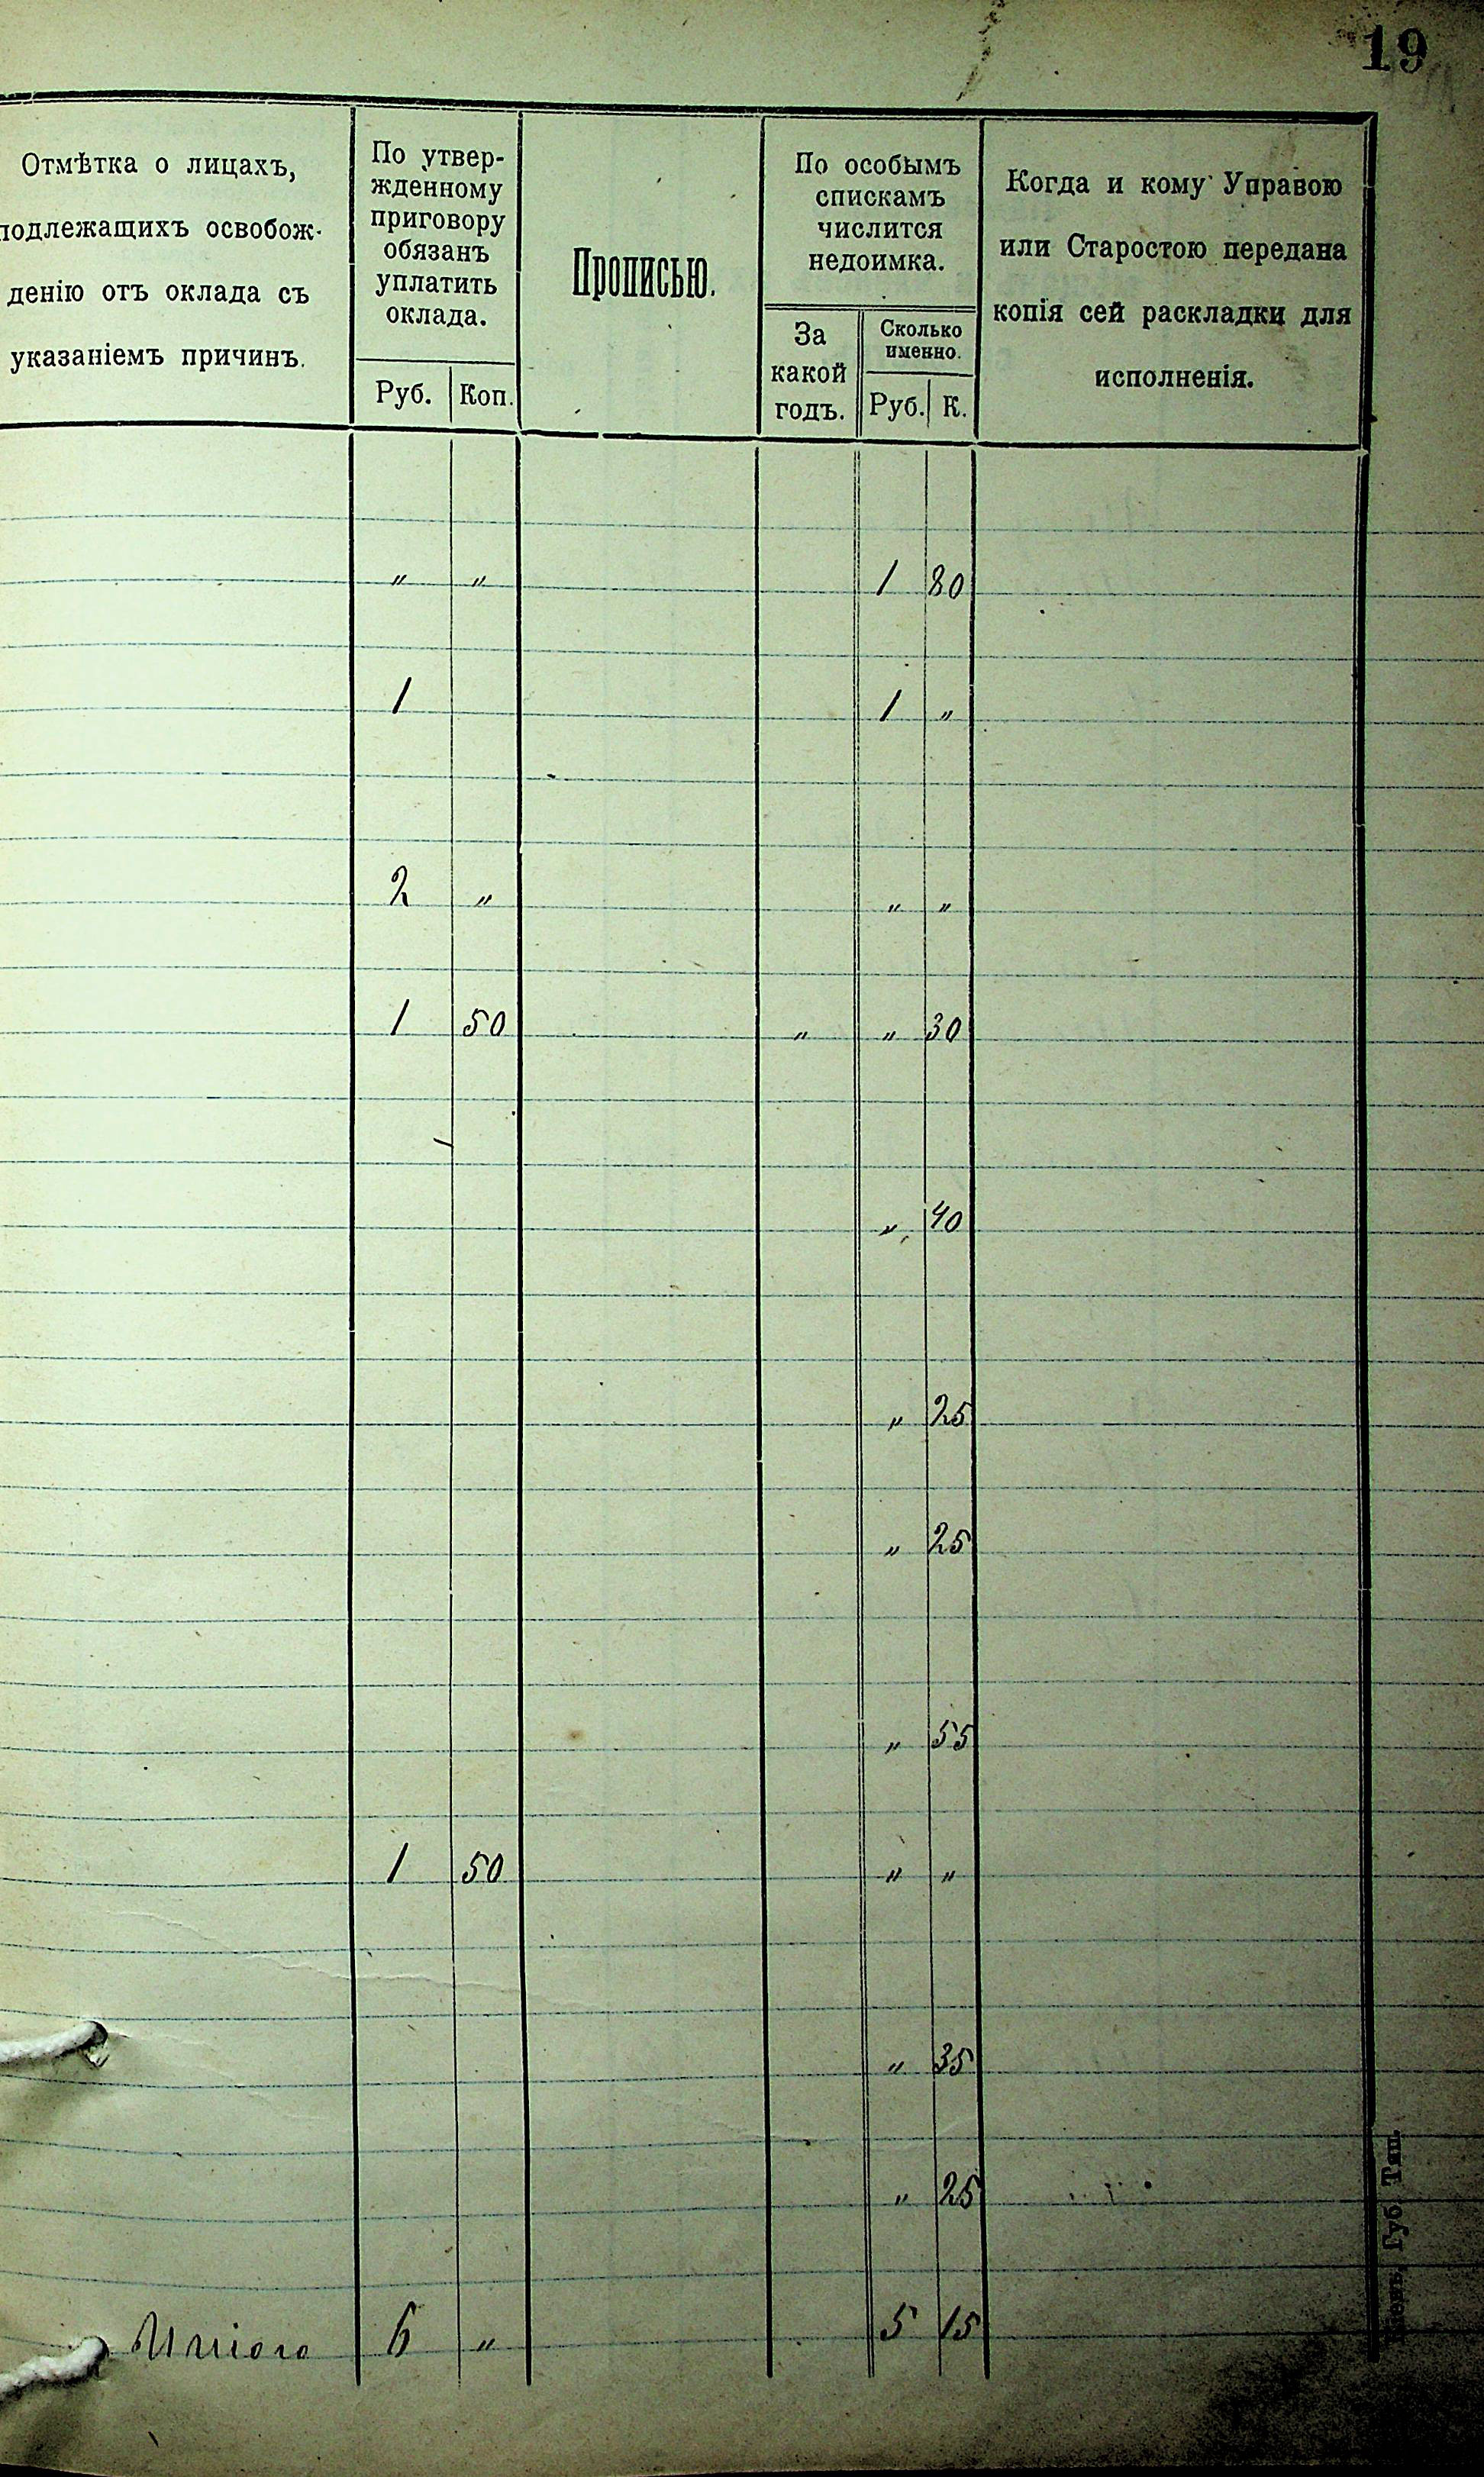 19
Отмѣтка о лицахъ,
подлежащихъ освобож-
денію отъ оклада съ
указаніемъ причинъ.
По утвер-
жденному
приговору
обязанъ
уплатить
оклада.
Руб. Коп.
Прописью.
По особымъ
спискамъ
числится
недоимка.
За
какой
годъ.
Сколько
именно.
Руб. К.
Когда и кому Управою
или Старостою передана
копія сей раскладки для
исполненія.
" " 1 80
1 1 "
2 " " "
1 50 " " 30
" 40
" 25
" 25
" 55
1 50 " "
" 35
" 25
Итого 6 " 5 15
Губ. Тип.